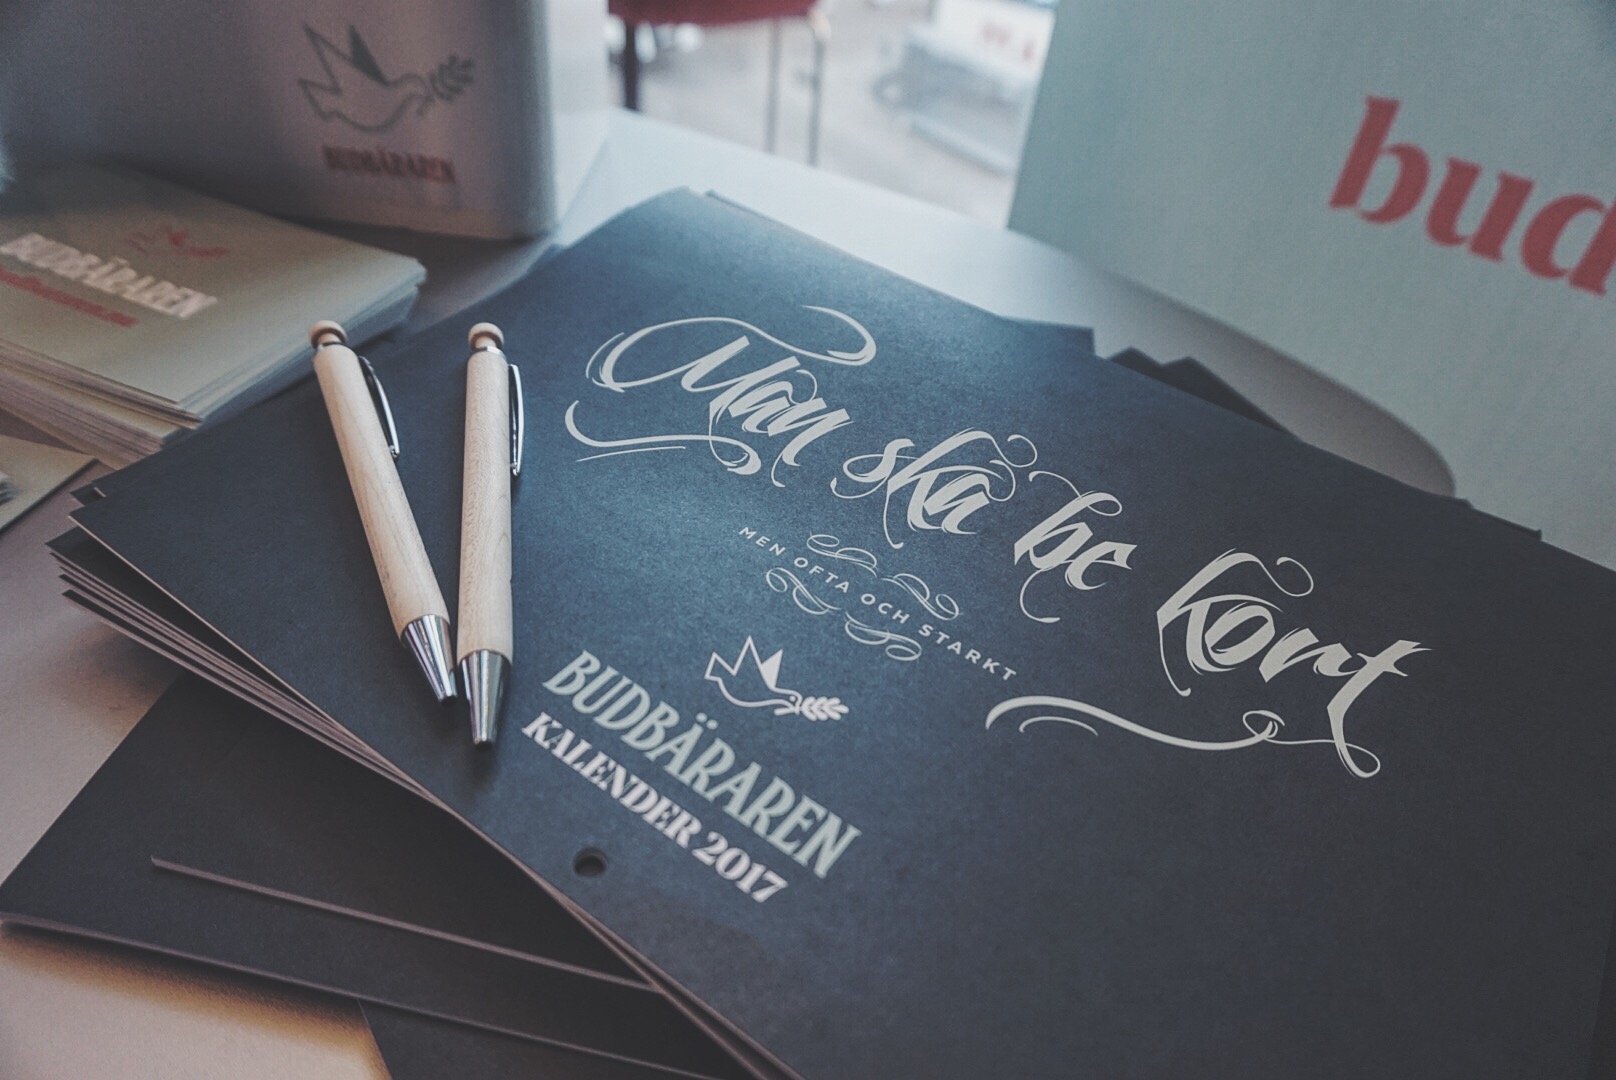 BUDBÄRAREN
bud
BUDBÄRAREN
Man ska be kort
MEN OFTA OCH STARKT
BUDBÄRAREN
KALENDER 2017